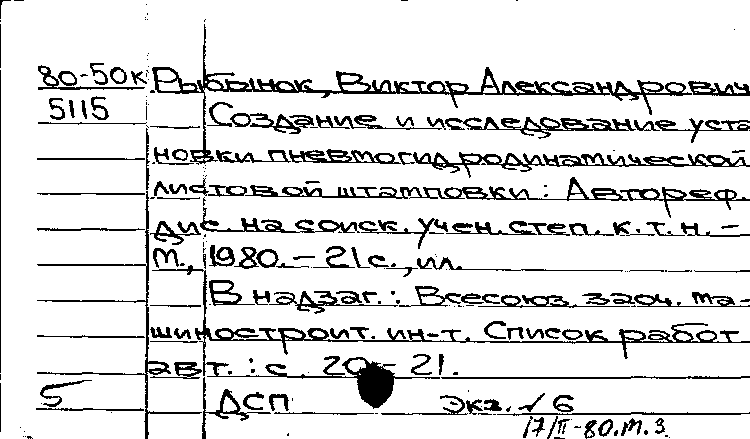 80-50к Рыбынок, Виктор Александрович
5115 Создание и исследование уста-
новки пневмогидродинамической
листовой штамповки: Автореф.
дис. на соиск. учен. степ. к.т.н. –
М., 1980. – 21 с., ил.
В надзаг.: Всесоюз. заоч. ма-
шиностроит. ин-т. Список работ
авт.: с. 20 – 21.
5 ДСП Экз. √ 6
17/II-80.М.З.